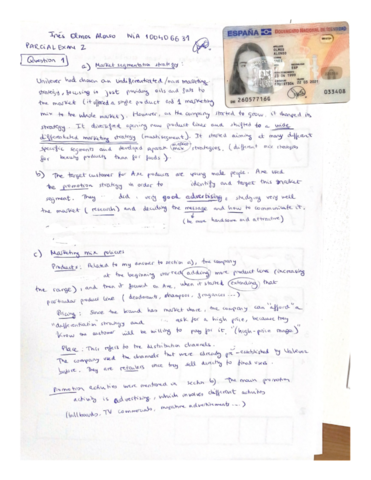 Inés Olmos Alonso NIA 100406631
PARCIAL EXAM 2
ESPAÑA
Question 1
a) Market segmentation strategy:
Unilever had chosen an undifferentiated / mix marketing
strategy, focusing in just providing oils and fats to
the market (it offered a single product and 1 marketing
mix to the whole market). However, as the company started to grow, it changed its
strategy: It diversified opening new product lines and shifted to a wide
differentiated marketing strategy (multisegment). It started aiming at many different
specific segments and developed separate mix strategies. (different mix
for beauty products than for foods).
b) The target customer for Axe products are young male people. Axe used
the promotion strategy in order to identify and target this market
segment. They did very good advertising, studying very well
the market (research) and deciding the message and how to communicate it.
(be more handsome and attractive)
c) Marketing mix policies
Product: Related to my answer to section a), the company
at the beginning started adding more product lines (increasing
the range), and then it focused on Axe, when it started extending that
particular product line (deodorants, shampoos, fragrances ...)
Pricing: Since the brand has market share, the company can "afford" a
"differentiation" strategy and ask for a high price, because they
know the customer will be willing to pay for it. "(high-price range)"
Place: This refers to the distribution channels.
The company used the channels that were already by Unilever
before. They are retailers since they sell directly to final
Promotion: activities were mentioned in section b). The main promotion
activity is advertising, which involves different activities
(billboards, TV commercials, magazine advertisements ...)